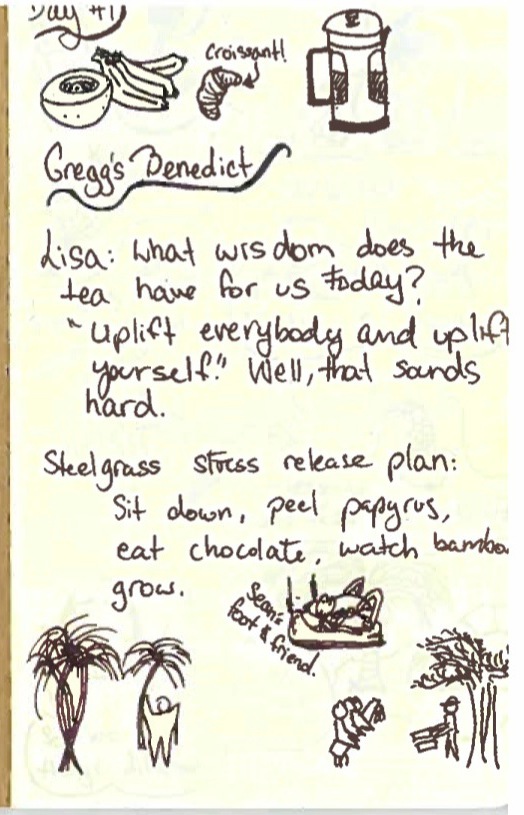 Day #1
Croissant!
Gregg's Benedict
Lisa: What wisdom does the
tea have for us today?
"Uplift everybody and uplift
yourself." Well, that sounds
hard.
Steelgrass stress release plan:
Sit down, peel papyrus,
eat chocolate, watch bamboo
grow.
Sean's
foot & friend.